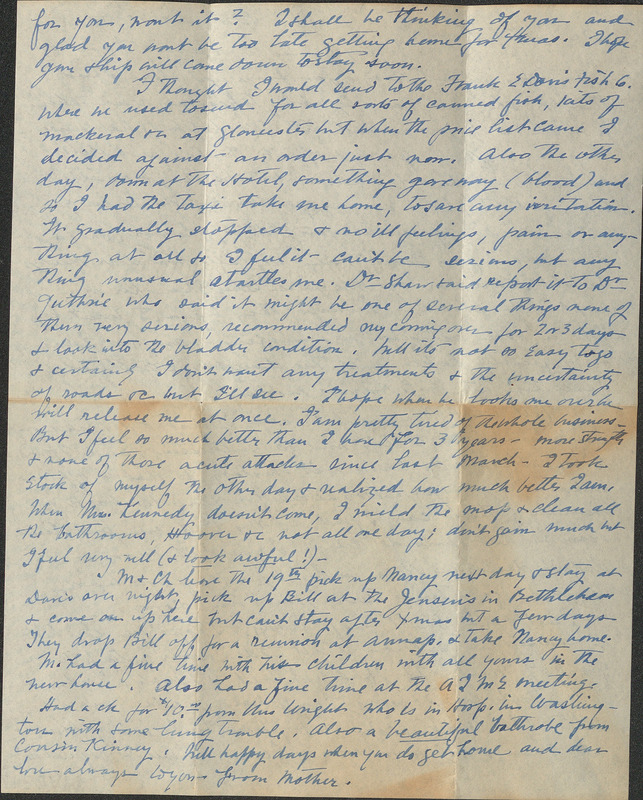 for you, wont it? I shall be thinking of you and
glad you wont be too late getting home for Xmas. I hope
your ship will come down to stay soon.
I thought I would send to the Frank E Davis Fish Co.
where we used to send for all sorts of canned fish, kits of
mackeral &c at Gloucester but when the price list came I
decided against an order just now. Also the other
day, down at the Hotel, something gave way (blood) and
so I had the taxi take me home, to save any irritation.
It gradually stopped & no ill feelings, pain or any-
thing at all so I feel it can't be serious, but any
thing unusual startles me. Dr Shaw said report it to Dr
Guthrie who said it might be one of several things none of
them very serious, recommended my coming over for 2 or 3 days
& look into the bladder condition. Well its not so easy to go
& certainly I don't want any treatments & the uncertainty
of roads &c but I'll see. I hope when he looks me over he
will release me at once. I am pretty tired of the whole business-
But I feel so much better than I have for 3 years - more strength
& none of those acute attacks since last March - I took
stock of myself the other day & realized how much better I am.
When Mrs. Kennedy doesn't come, I wield the mop & clean all
the bathrooms, Hoover &c not all one day; don't gain much but
I feel very well (& look awful!) -
M & Ch leave the 19th pick up Nancy next day & stay at
Davis over night, pick up Bill at the Jensen's in Bethlehem
& come on up here but can't stay after Xmas but a few days
They drop Bill off for a reunion at Annap. & take Nancy home.
M. had a fine time with his children with all yours in the
new house. Also had a fine time at the A S M E meeting.
Had a ck for $10.00 from Wright who is in Hosp. in Washing-
ton with some lung trouble. Also a beautiful bathrobe from
Cousin Kinney. Will happy days when you do get home and dear
love always to you from Mother.